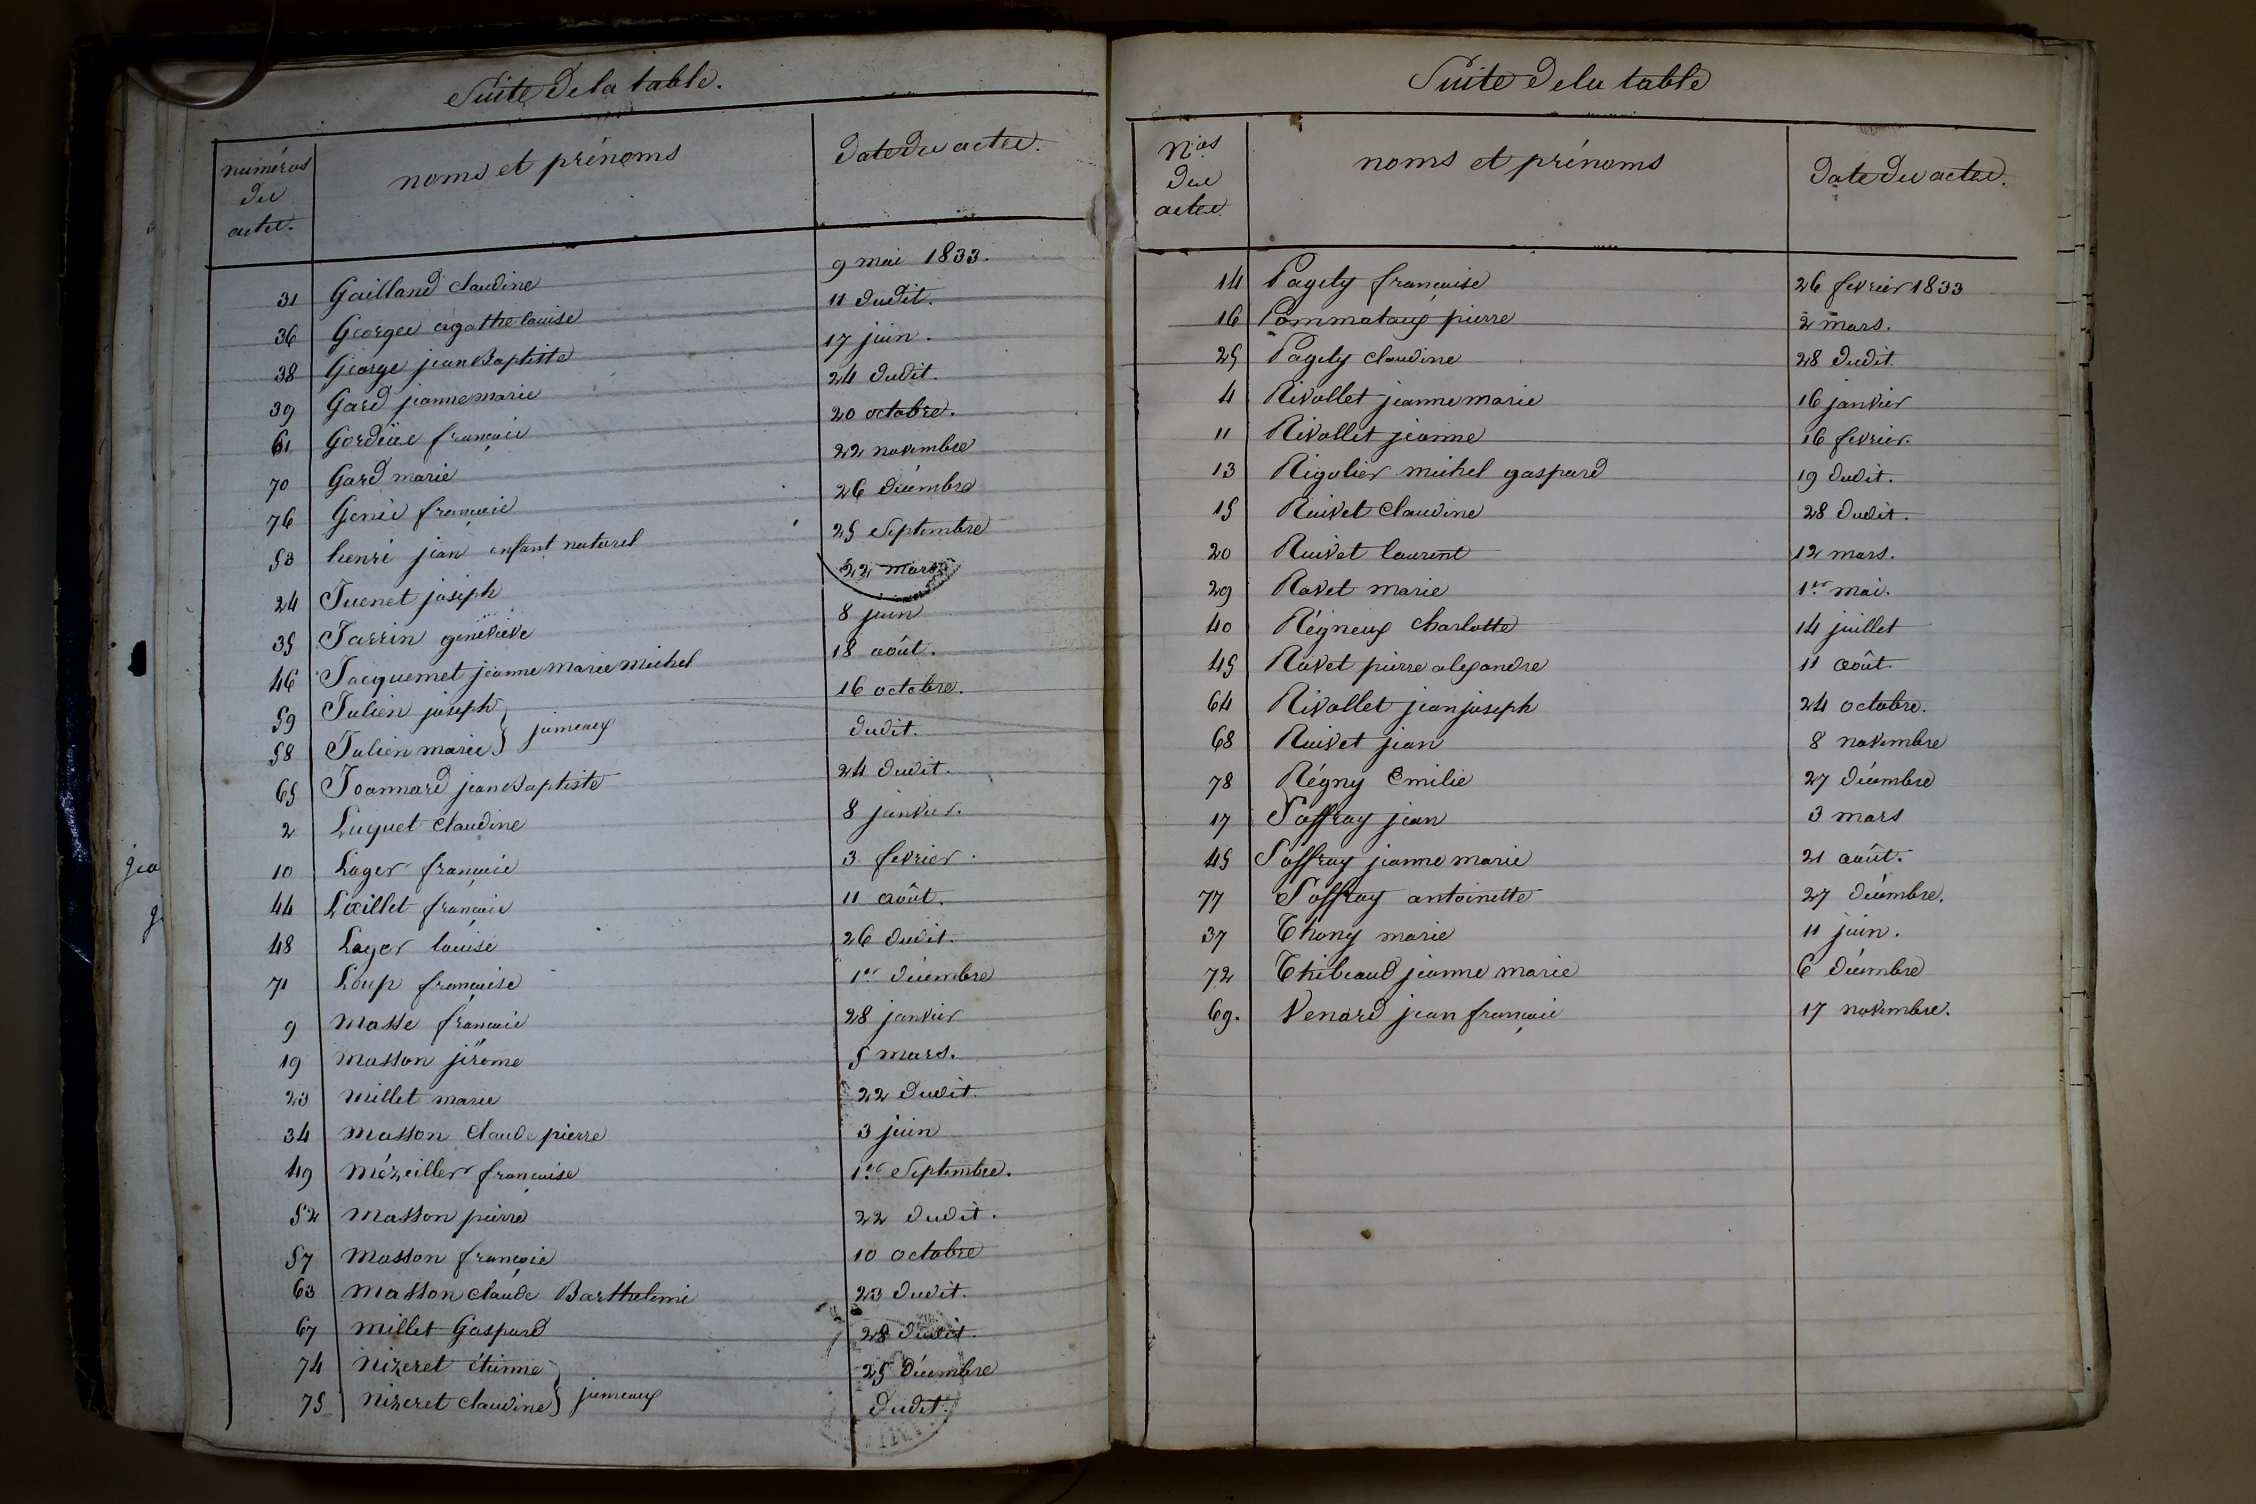 Suite de la table.
numéros des actes.
noms et prénoms
date des actes.
31 Gailland claudine 9 mai 1833.
36 George agathe louise 11 dudit.
38 George jean Baptiste 17 juin.
39 Gard jeanne marie 24 dudit.
61 Gordiae françois 20 octobre.
70 Gard marie 22 novembre
76 Genis françois 26 décembre
53 henri jean enfant naturel 25 Septembre
24 Juenet joseph 22 mars
35 Jarrin geneviève 8 juin
46 Jacquemet jeanne marie michel 18 août.
59 Julien joseph 16 octobre.
58 Julien marie } jumeaux dudit.
65 Joannard jean Baptiste 24 dudit.
2 Luquet claudine 8 janvier.
10 Lager françois 3 fevrier.
44 Lœillet françois 11 août.
48 Lager louise 26 dudit.
71 Loup françoise 1er décembre
9 Masse françois 28 janvier
19 Masson jérome 5 mars.
23 Millet marie 22 dudit.
34 Masson claude pierre 3 juin
49 Mézeiller françoise 1er Septembre.
52 Masson pierre 22 dudit.
57 Masson françois 10 octobre
63 Masson claude Barthelemi 23 dudit.
67 Millet Gaspard 28 dudit.
74 Nizeret étienne 25 Décembre
75 Nizeret claudine } jumeaux dudit.
Suite de la table
Nos des actes
noms et prénoms
date des actes.
14 Pagely françoise 26 fevrier 1833
16 Pommataux pierre 2 mars.
25 Pagely claudine 28 dudit.
4 Rivollet jeanne marie 16 janvier
11 Rivollet jeanne 16 fevrier.
13 Rigolier michel gaspard 19 dudit.
15 Ruivet claudine 28 dudit.
20 Ruivet laurent 12 mars.
29 Ravet marie 1er mai.
40 Régneux charlotte 14 juillet
45 Ravet pierre alexandre 11 août.
64 Rivollet jean joseph 24 octobre.
68 Ruivet jean 8 novembre
78 Régny Emilie 27 décembre
17 Soffray jean 3 mars
45 Soffray jeanne marie 21 août.
77 Soffray antoinette 27 décembre.
37 Thony marie 11 juin.
72 Thibeaud jeanne marie 6 décembre
69. Venard jean françois 17 novembre.